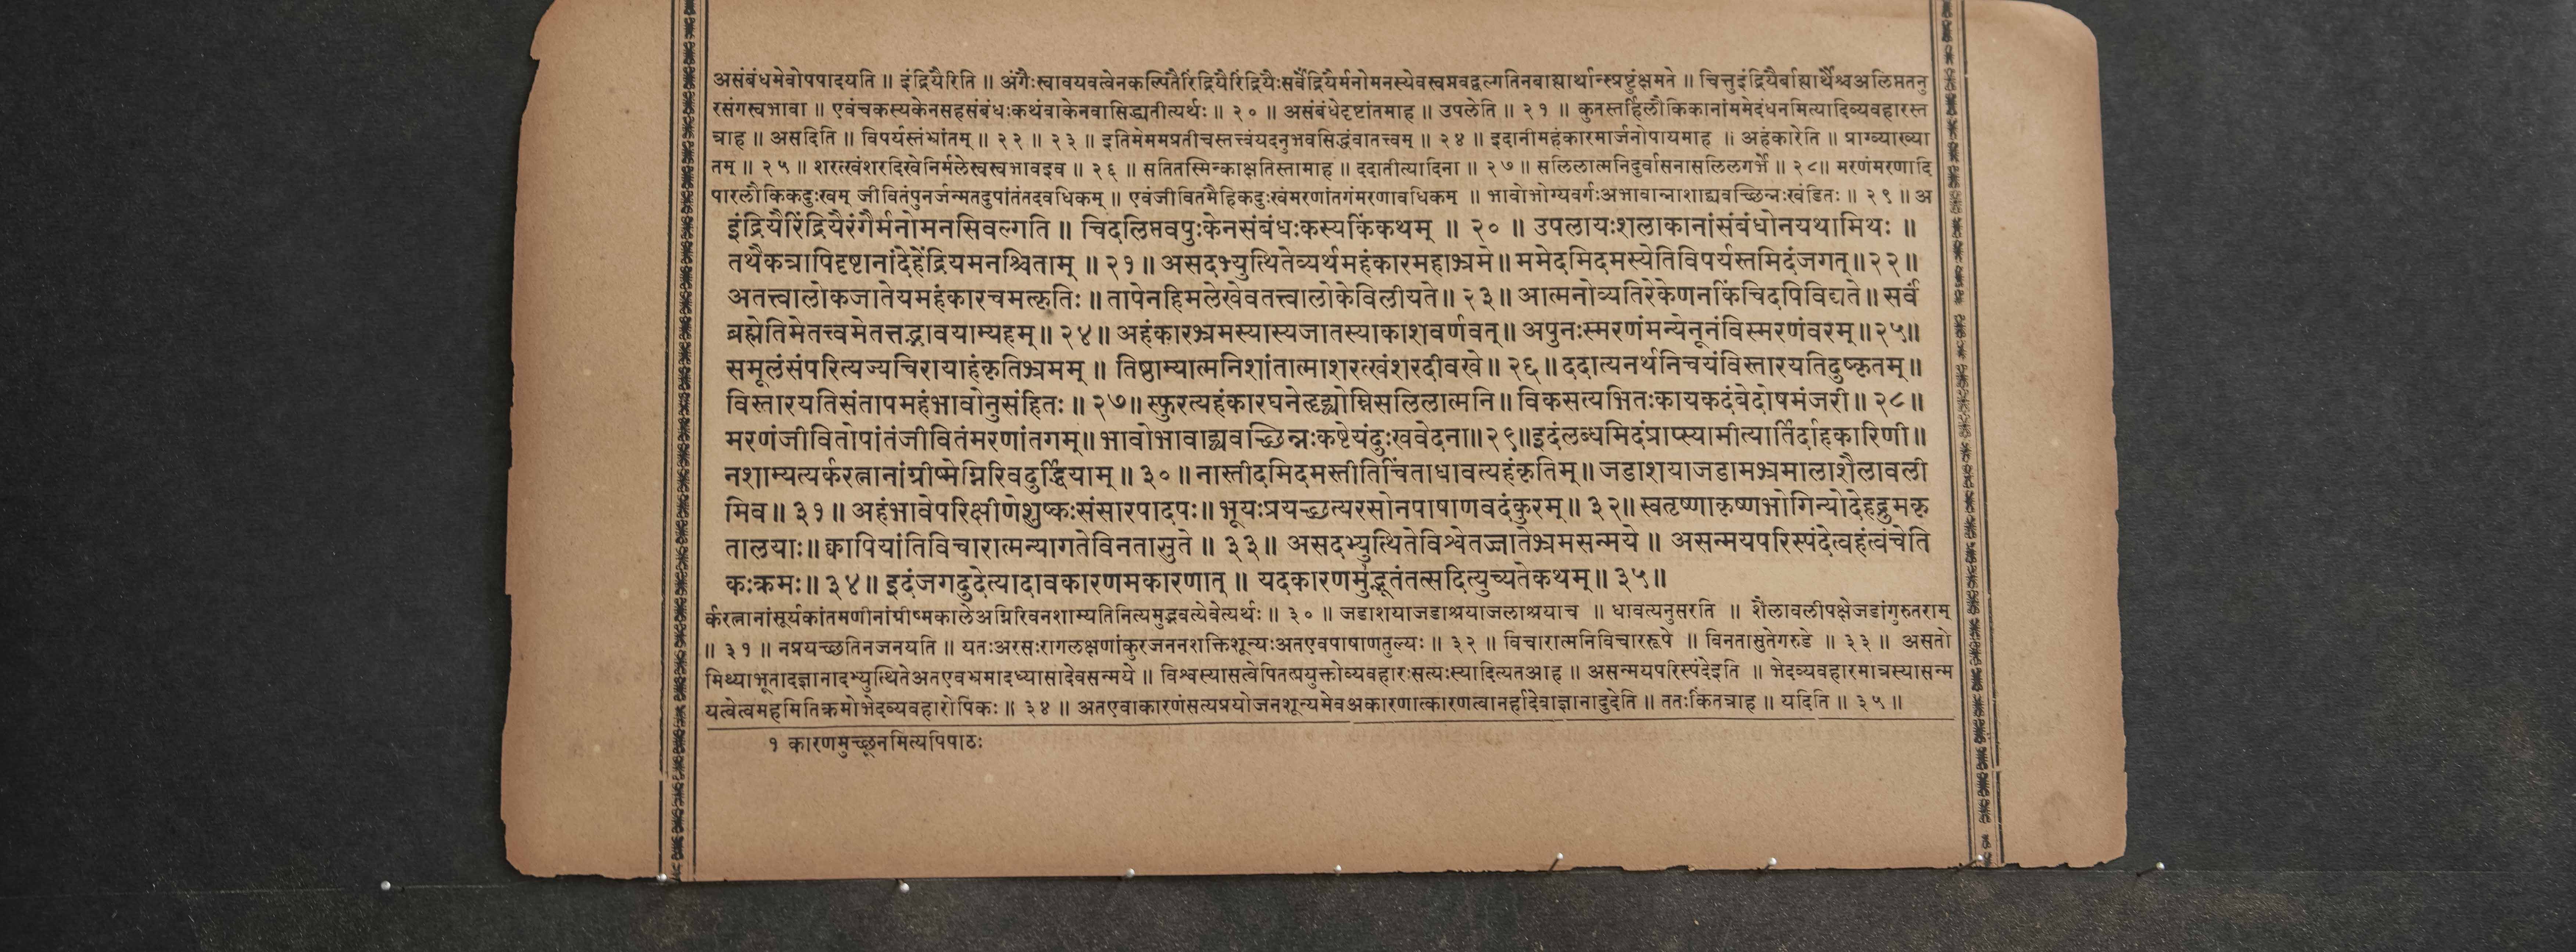 असंबंधमेवोपपादयति ॥ इंद्रियैरिति ॥ अंगैःस्वावयवत्वेनकल्पितैरिंद्रियैरिंद्रियैःसर्वेंद्रियैर्मनोमनस्येवस्वप्नवद्वल्गतिनबाह्यार्थान्स्प्रष्टुंक्षमते ॥ चित्तुइंद्रियैर्बाह्यार्थैश्चअलिप्ततनु
रसंगस्वभावा ॥ एवंचकस्यकेनसहसंबंधःकथंवाकेनवासिद्ध्यतीत्यर्थः ॥ २० ॥ असंबंधेदृष्टांतमाह ॥ उपलेति ॥ २१ ॥ कुतस्तर्हिलौकिकानांममेदंधनमित्यादिव्यवहारस्त
त्राह ॥ असदिति ॥ विपर्यस्तंभ्रांतम् ॥ २२ ॥ २३ ॥ इतिमेममप्रतीचस्तत्त्वंयदनुभवसिद्धंवातत्त्वम् ॥ २४ ॥ इदानीमहंकारमार्जनोपायमाह ॥ अहंकारेति ॥ प्राग्व्याख्या
तम् ॥ २५ ॥ शरत्खंशरदिखेनिर्मलेस्वस्वभावइव ॥ २६ ॥ सतितस्मिन्काक्षतिस्तामाह ॥ ददातीत्यादिना ॥ २७ ॥ सलिलात्मनिदुर्वासनासलिलगर्भे ॥ २८ ॥ मरणंमरणादि
पारलौकिकदुःखम् जीवितंपुनर्जन्मतदुपांतंतदवधिकम् ॥ एवंजीवितमैहिकदुःखंमरणांतगंमरणावधिकम् ॥ भावोभोग्यवर्गःअभावान्नाशाद्व्यवच्छिन्नःखंडितः ॥ २९ ॥ अ
इंद्रियैरिंद्रियैरंगैर्मनोमनसिवल्गति ॥ चिदलिप्तवपुःकेनसंबंधःकस्यकिंकथम् ॥ २० ॥ उपलायःशलाकानांसंबंधोनयथामिथः ॥
तथैकत्रापिदृष्टानांदेहेंद्रियमनश्चिताम् ॥ २१ ॥ असदभ्युत्थितेव्यर्थमहंकारमहाभ्रमे ॥ ममेदमिदमस्येतिविपर्यस्तमिदंजगत् ॥ २२ ॥
अतत्त्वालोकजातेयमहंकारचमत्कृतिः ॥ तापेनहिमलेखेवतत्त्वालोकेविलीयते ॥ २३ ॥ आत्मनोव्यतिरेकेणनकिंचिदपिविद्यते ॥ सर्वं
ब्रह्मेतिमेतत्त्वमेतत्तद्भावयाम्यहम् ॥ २४ ॥ अहंकारभ्रमस्यास्यजातस्याकाशवर्णवत् ॥ अपुनःस्मरणंमन्येनूनंविस्मरणंवरम् ॥ २५ ॥
समूलंसंपरित्यज्यचिरायाहंकृतिभ्रमम् ॥ तिष्ठाम्यात्मनिशांतात्माशरत्खंशरदीवखे ॥ २६ ॥ ददात्यनर्थनिचयंविस्तारयतिदुष्कृतम् ॥
विस्तारयतिसंतापमहंभावोनुसंहितः ॥ २७ ॥ स्फुरत्यहंकारघनेहृद्व्योम्निसलिलात्मनि ॥ विकसत्यभितःकायकदंबेदोषमंजरी ॥ २८ ॥
मरणंजीवितोपांतंजीवितंमरणांतगम् ॥ भावोभावाद्व्यवच्छिन्नःकष्टेयंदुःखवेदना ॥ २९ ॥ इदंलब्धमिदंप्राप्स्यामीत्यार्तिर्दाहकारिणी ॥
नशाम्यत्यर्करत्नानांग्रीष्मेग्निरिवदुर्द्धियाम् ॥ ३० ॥ नास्तीदमिदमस्तीतिचिंताधावत्यहंकृतिम् ॥ जडाशयाजडामभ्रमालाशैलावली
मिव ॥ ३१ ॥ अहंभावेपरिक्षीणेशुष्कःसंसारपादपः ॥ भूयःप्रयच्छत्यरसोनपाषाणवदंकुरम् ॥ ३२ ॥ स्वतृष्णाकृष्णभोगिन्योदेहद्रुमकृ
तालयाः ॥ क्वापियांतिविचारात्मन्यागतेविनतासुते ॥ ३३ ॥ असदभ्युत्थितेविश्वेतज्जातेभ्रमसन्मये ॥ असन्मयपरिस्पंदेत्वहंत्वंचेति
कःक्रमः ॥ ३४ ॥ इदंजगदुदेत्यादावकारणमकारणात् ॥ यदकारणमुद्भूतंतत्सदित्युच्यतेकथम् ॥ ३५ ॥
र्करत्नानांसूर्यकांतमणीनांग्रीष्मकालेअग्निरिवनशाम्यतिनित्यमुद्भवत्येवेत्यर्थः ॥ ३० ॥ जडाशयाजडाश्रयाजलाश्रयाच ॥ धावत्यनुसरति ॥ शैलावलीपक्षेजडांगुरुतराम्
॥ ३१ ॥ नप्रयच्छतिनजनयति ॥ यतःअरसःरागलक्षणांकुरजननशक्तिशून्यःअतएवपाषाणतुल्यः ॥ ३२ ॥ विचारात्मनिविचाररूपे ॥ विनतासुतेगरुडे ॥ ३३ ॥ असतो
मिथ्याभूतादज्ञानादभ्युत्थितेअतएवभ्रमादध्यासादेवसन्मये ॥ विश्वस्यासत्वेपितत्प्रयुक्तोव्यवहारःसत्यःस्यादित्यतआह ॥ असन्मयपरिस्पंदेइति ॥ भेदव्यवहारमात्रस्यासन्म
यत्वेत्वमहमितिक्रमोभेदव्यवहारोपिकः ॥ ३४ ॥ अतएवाकारणंसत्यप्रयोजनशून्यमेवअकारणात्कारणत्वानर्हादेवाज्ञानादुदेति ॥ ततःकिंतत्राह ॥ यदिति ॥ ३५ ॥
१ कारणमुच्छूनमित्यपिपाठः